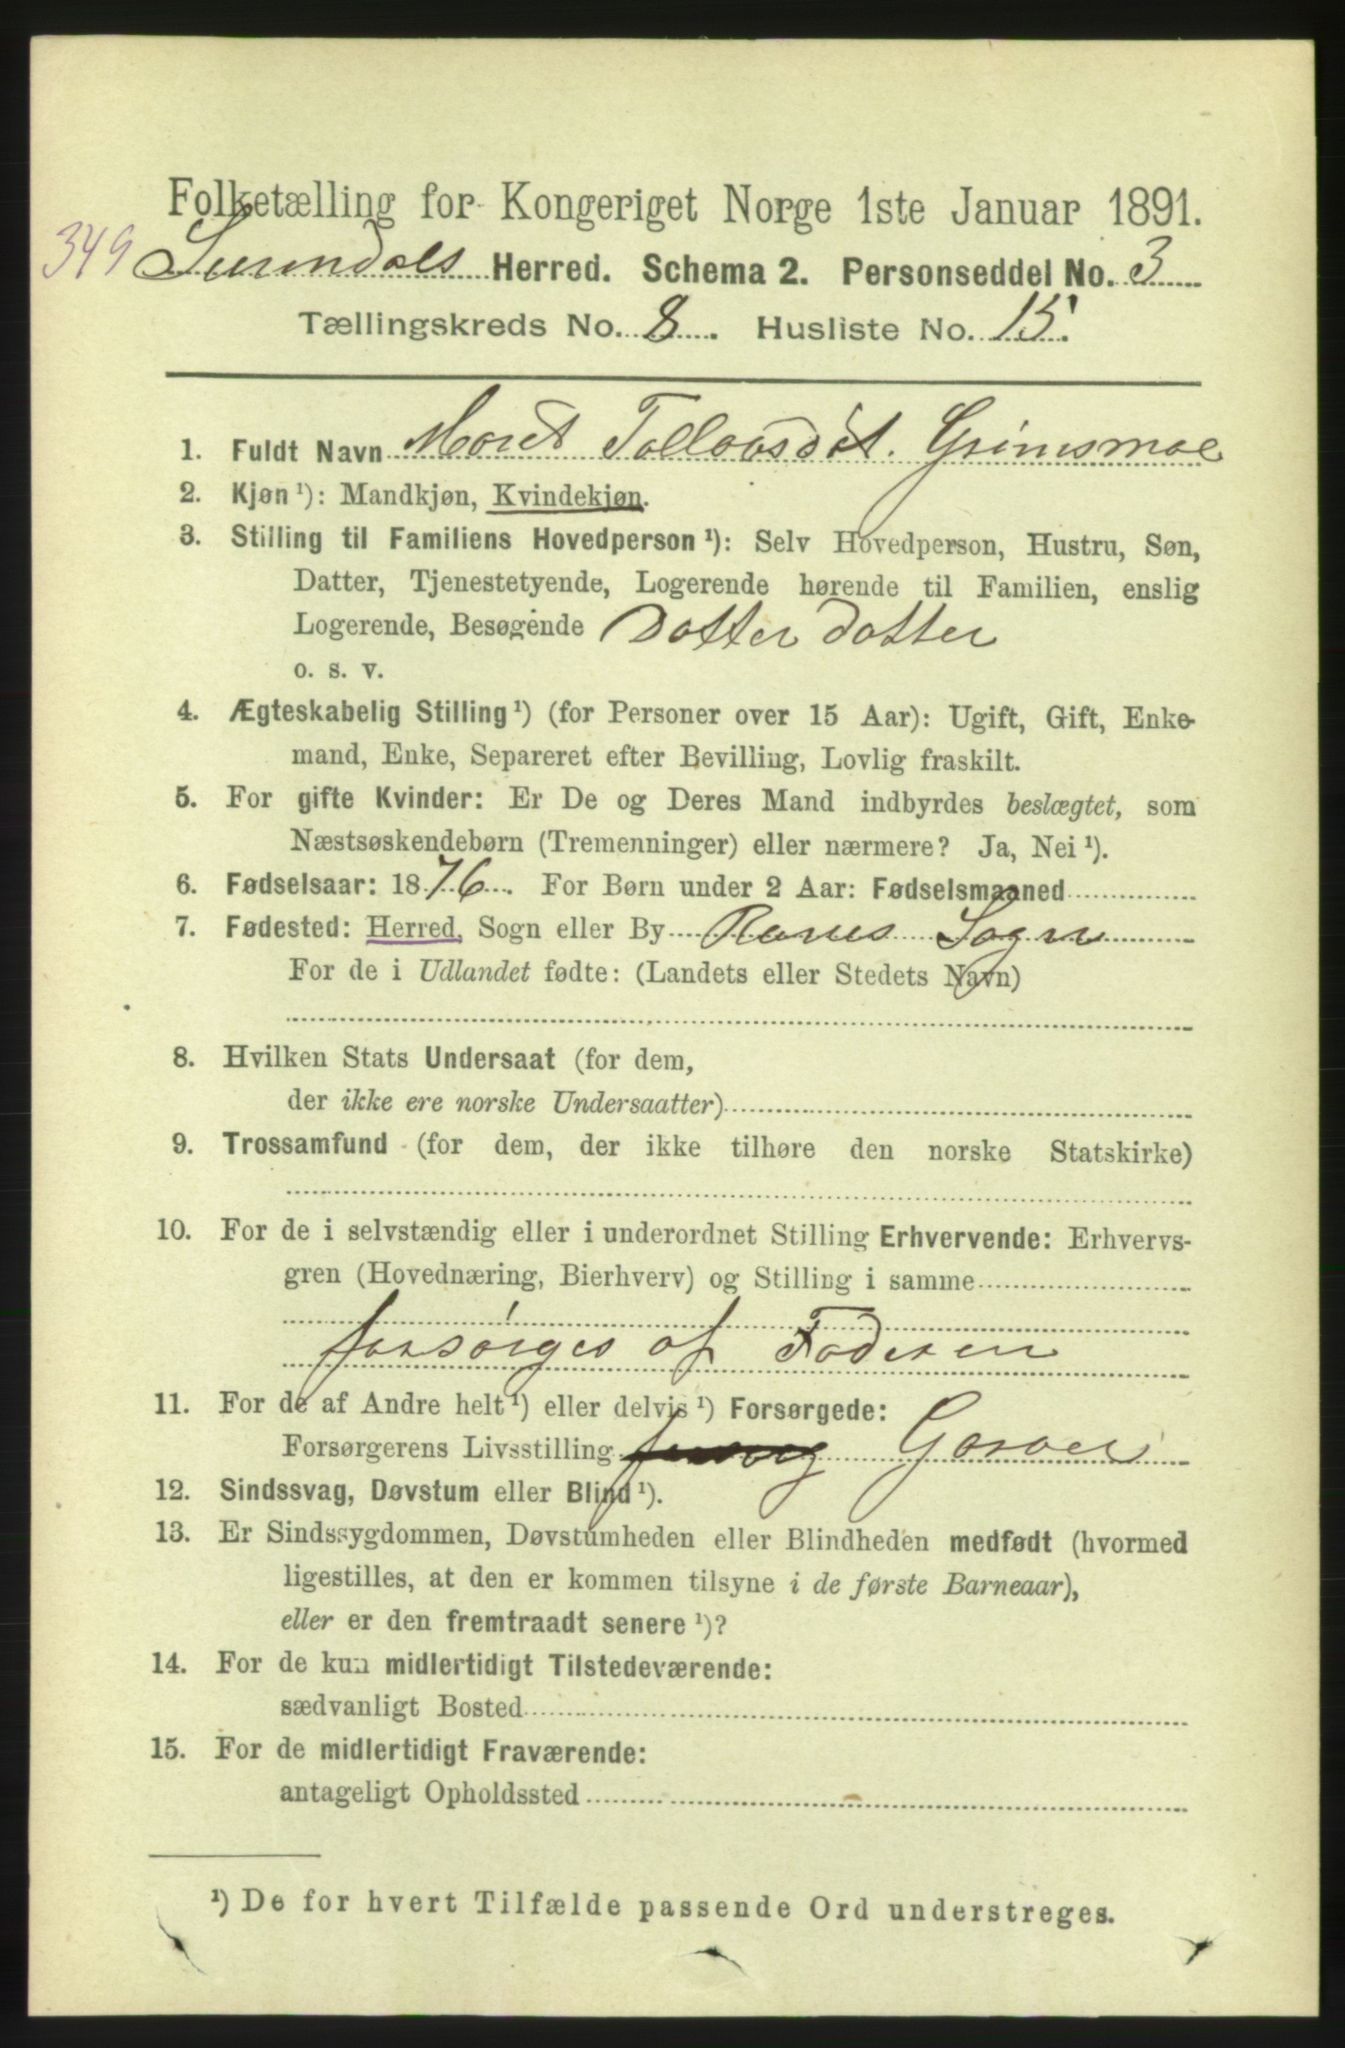 Folketælling for Kongeriget Norge 1ste Januar 1891.
349 Surendals Herred. Schema 2. Personseddel No. 3
Tællingskreds No. 8. Husliste No. 15.
1. Fuldt Navn Marit Tollovsdt. Grimsmoe
2. Kjøn ¹): Mandkjøn, Kvindekjøn.
3. Stilling til Familiens Hovedperson ¹): Selv Hovedperson, Hustru, Søn,
Datter, Tjenestetyende, Logerende hørende til Familien, enslig
Logerende, Besøgende Datter datter
o. s. v.
4. Ægteskabelig Stilling ¹) (for Personer over 15 Aar): Ugift, Gift, Enke-
mand, Enke, Separeret efter Bevilling, Lovlig fraskilt.
5. For gifte Kvinder: Er De og Deres Mand indbyrdes beslægtet, som
Næstsøskendebørn (Tremenninger) eller nærmere? Ja, Nei ¹).
6. Fødselsaar: 1876. For Børn under 2 Aar: Fødselsmaaned
7. Fødested: Herred, Sogn eller By Ranes Sogn
For de i Udlandet fødte: (Landets eller Stedets Navn)
8. Hvilken Stats Undersaat (for dem,
der ikke ere norske Undersaatter)
9. Trossamfund (for dem, der ikke tilhøre den norske Statskirke)
10. For de i selvstændig eller i underordnet Stilling Erhvervende: Erhvervs-
gren (Hovednæring, Bierhverv) og Stilling i samme
forsørges af Faderen
11. For de af Andre helt ¹) eller delvis ¹) Forsørgede:
Forsørgerens Livsstilling Garver
12. Sindssvag, Døvstum eller Blind ¹).
13. Er Sindssygdommen, Døvstumheden eller Blindheden medfødt (hvormed
ligestilles, at den er kommen tilsyne i de første Barneaar),
eller er den fremtraadt senere ¹)?
14. For de kun midlertidigt Tilstedeværende:
sædvanligt Bosted
15. For de midlertidigt Fraværende:
antageligt Opholdssted
¹) De for hvert Tilfælde passende Ord understreges.